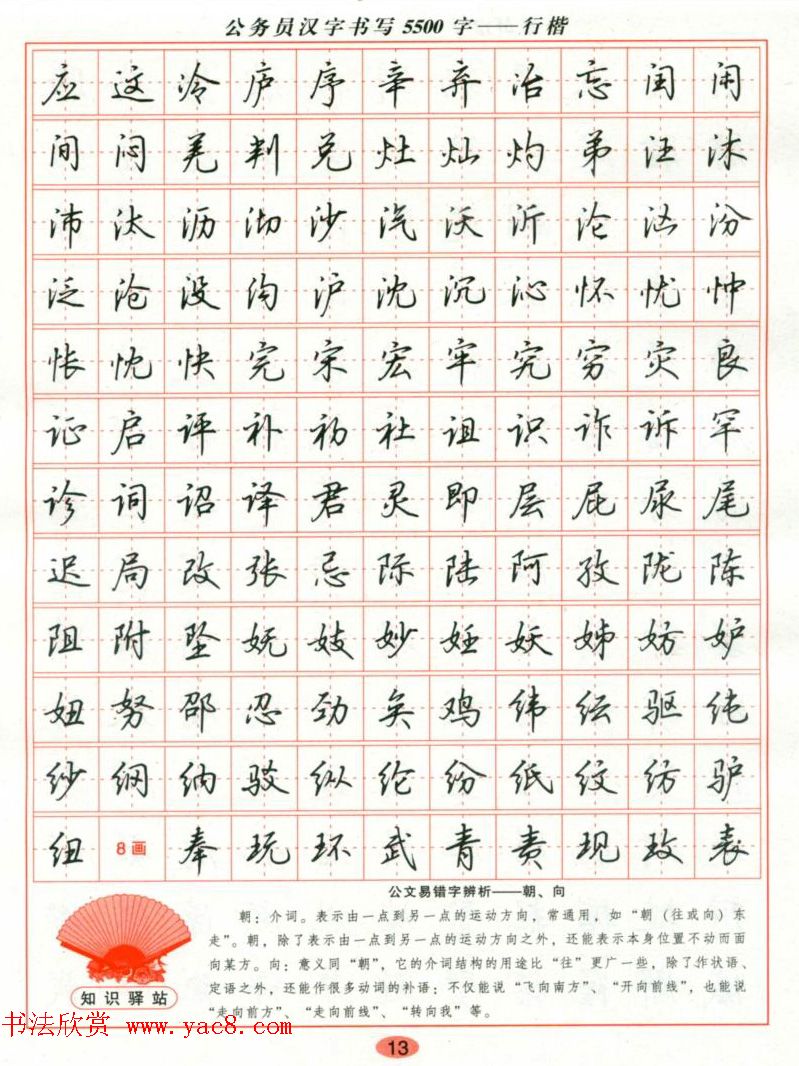 公务员汉字书写5500字——行楷
应这冷庐序辛弃冶忘闰闲
间闷羌判兑灶灿灼弟汪沐
沛汰沥沏沙汽沃沂沦汹汾
泛沧没沟沪沈沉沁怀忧忡
怅忱快完宋宏牢究穷灾良
证启评补初社诅识诈诉罕
诊词诏译君灵即层屁尿尾
迟局改张忌际陆阿孜陇陈
阻附坠妩妓妙妊妖姊妨妒
妞努邵忍劲矣鸡纬纭驱纯
纱纲纳驳纵纶纷纸纹纺驴
纽8画奉玩环武青责现玫表
公文易错字辨析——朝、向
朝：介词。表示由一点到另一点的运动方向，常通用，如“朝（往或向）东
走”。朝，除了表示由一点到另一点的运动方向之外，还能表示本身位置不动而面
向某方。向：意义同“朝”，它的介词结构的用途比“往”更广一些，除了作状语、
定语之外，还能作很多动词的补语：不仅能说“飞向南方”、“开向前线”，也能说
“走向前方”、“走向前线”、“转向我”等。
知识驿站
书法欣赏 www.yac8.com
13